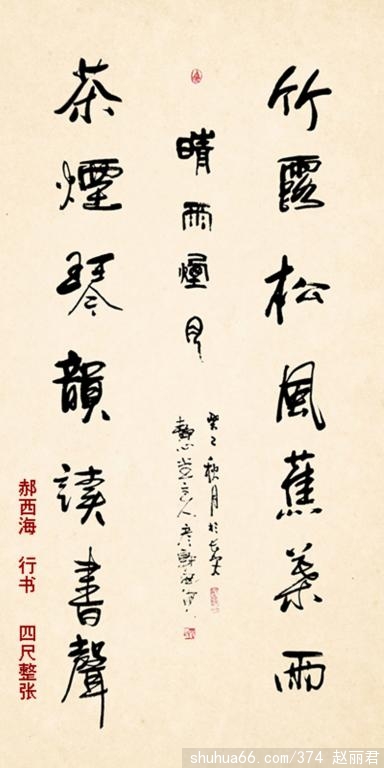 竹露松風蕉葉雨
晴雨煙月
癸巳秋月於長安
靜心堂主人
茶煙琴韻讀書聲
郝西海 行书 四尺整张
shuhua66.com/374 赵丽君